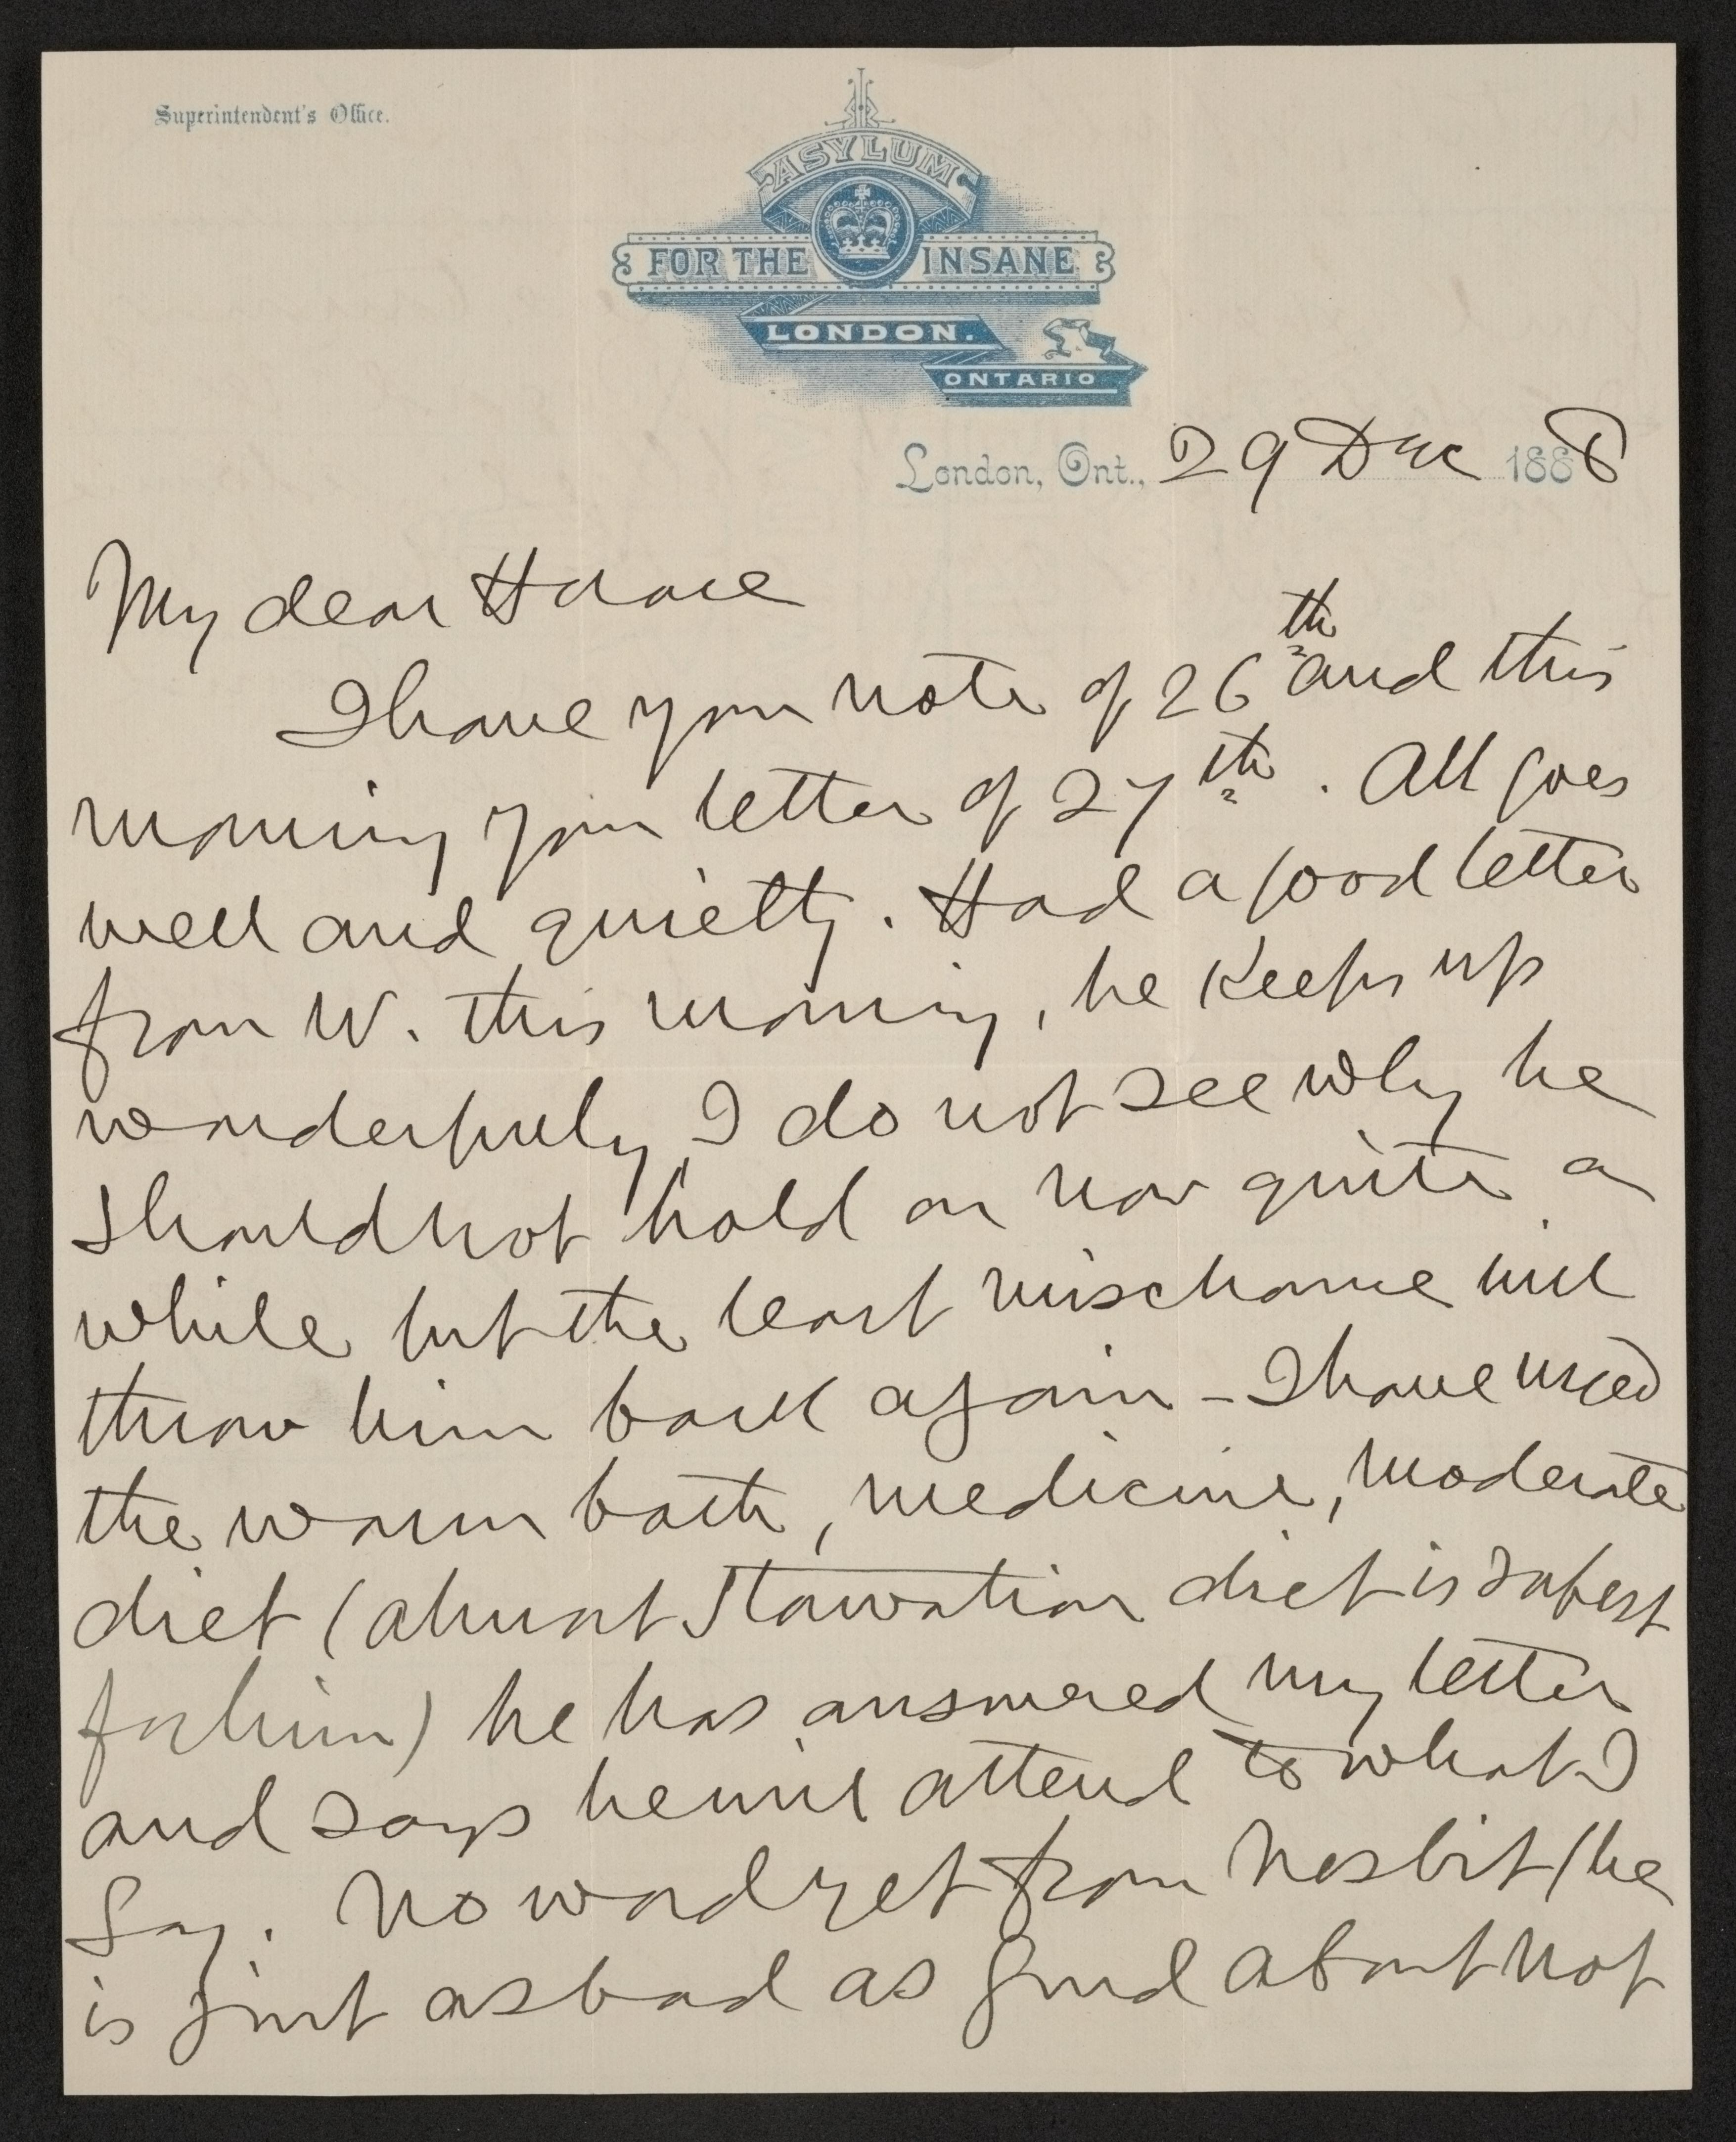 Superintendent's Office.
ASYLUM
FOR THE INSANE
LONDON.
ONTARIO
London, Ont., 29 Dec 1888
My dear Horace
I have your note of 26th and this
morning your letter of 27th. All goes
well and quietly. Had a good letter
from W. this morning, he keeps up
wonderfully, I do not see why he
should not hold on now quite a
while but the least mischance will
throw him back again – I have urged
the warm bath, medicine, moderate
diet (almost starvation diet is safest
for him) he has answered my letter
and says he will attend to what I
say. No word yet from Nesbit (he
is just as bad as Gurd about not